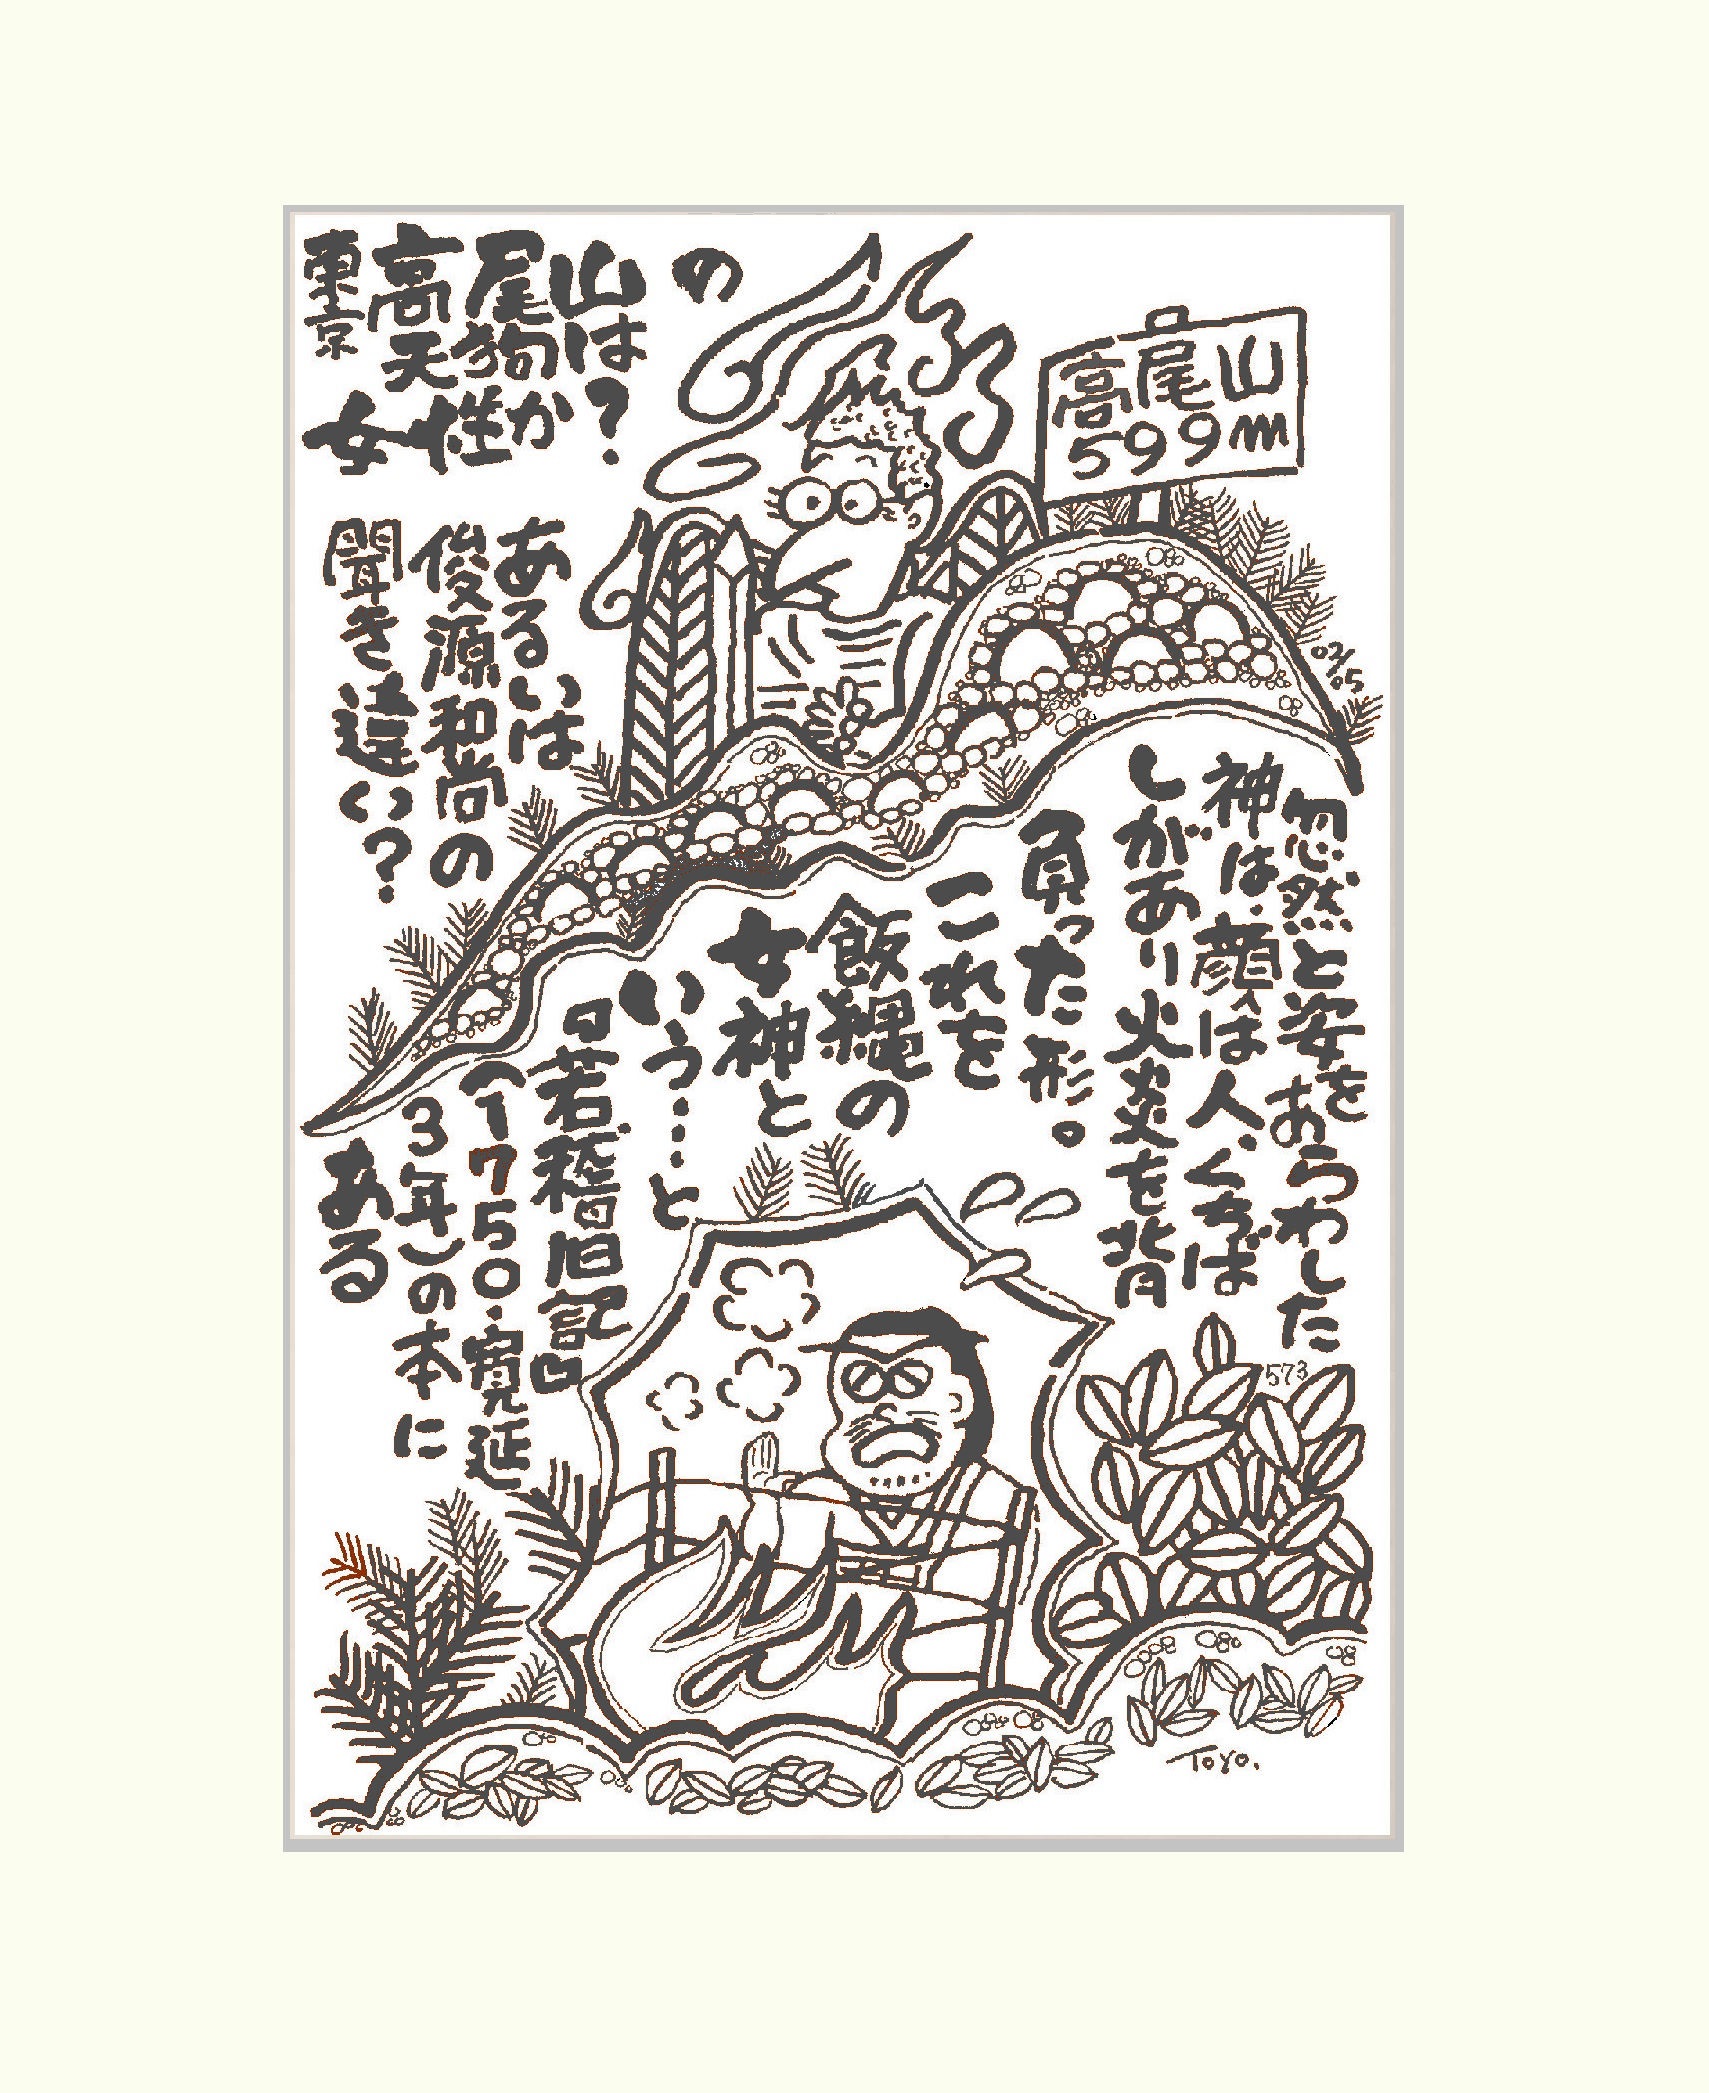 東京 高尾山の
天狗は?
女性か
あるいは
俊源和尚の
聞き違い?
高尾山
599m
02/05
忽然と姿をあらわした
神は、顔は人、くちば
しがあり火炎を背
負った形。
これを
飯縄の
女神と
いう…と
『若稽旧記』
(1750・寛延
3年)の本に
ある
573
Toyo.